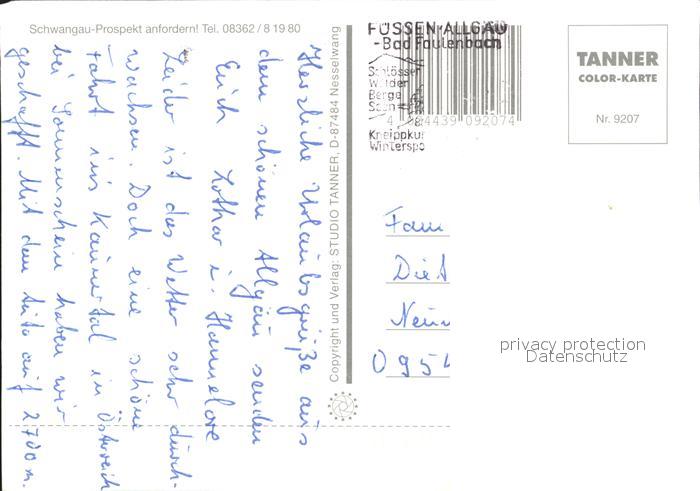 Schwangau-Prospekt anfordern! Tel. 08362 / 8 19 80
Herzliche Urlaubsgrüße aus
dem schönen Allgäu senden
Euch Lothar u. Hannelore
Leider ist das Wetter sehr durch-
wachsen. Doch eine schöne
Fahrt ins Kaunertal in Österreich
bei Sonnenschein haben wir
geschafft. Mit dem Auto auf 2700 m.
Copyright und Verlag: STUDIO TANNER, D-87484 Nesselwang
FÜSSEN-ALLGÄU
-Bad Faulenbach
Schlösser
Wälder
Berge
Seen
Kneippkur
Winterspo
4 439 092074
TANNER
COLOR-KARTE
Nr. 9207
Fam
Diet
Neun
0954
privacy protection
Datenschutz